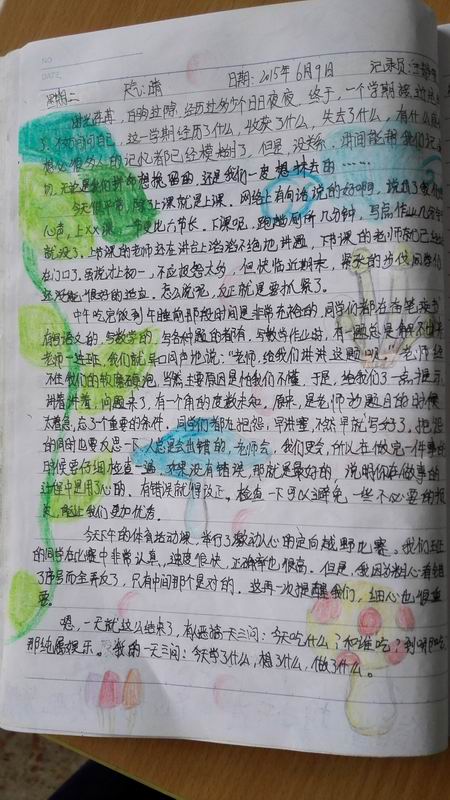 NO
DATE
星期二 天气:晴 日期:2015年6月9日 记录员:
时光荏苒,白驹过隙。经历过多少个日日夜夜,终于,一个学期
了。夜间问自己,这一学期经历了什么,收获了什么,失去了什么,有什么
想必很多人的记忆都已经模糊了,但是,没关系,时间能帮我们记
切,无论是我们拼命想挽留的,还是我们一度想抹去的……
天很平常,除了上课就是上课。网络上有句话说的好啊,说出了
心声,上XX课,一节更比六节长。下课呢,跑趟厕所几分钟,写点作业几分钟
就没了。上节课的老师还在讲台上滔滔不绝地讲题,下节课的老师
在门口了。虽说才上初一,不应该怎么的,但快临近期末,紧张的步伐同学们
还没能很好的适应。怎么说呢,反正就是要抓紧了。
中午吃完饭到午睡前那段时间是非常充裕的,同学们都在奋笔疾书
有写语文的,写数学的,写各种题的都有,写数学作业时,有一题总是解不出来
老师一进班,我们就异口同声地说:“老师,给我们讲讲这题呗。”老师经
不住我们的软磨硬泡,当然主要原因是怕我们不懂,于是,给我们了一点提示
讲着讲着,问题来了,有一个角的度数未知,原来,是老师
太着急,忘了一个重要的条件。同学们都在抱怨,早讲嘛,不然早就写分了,抱怨
的同时也要反思一下,人总是会出错的,老师会,我们更会,所以在做完一件事的
时候要仔细检查一遍,如果没有错误,那就是最好的,说明你在做事的
过程中是用了心的,有错误就得改正。检查一下可以避免一些不必要的损
失,能让我们更加优秀。
今天下午的体育活动课,举行了激动人心的定向越野比赛。我们班
的同学在比赛中非常认真,速度很快,正确率也很高。但是,我因为粗心看错
了序号而全弄反了,只有中间那个是对的,这再一次提醒我们,细心也很重
要。
嗯,一天就这么结束了,有人恶搞一天三问:今天吃什么?和谁吃?到哪吃?
那纯属娱乐。我的一天三问:今天学了什么,想了什么,做了什么。